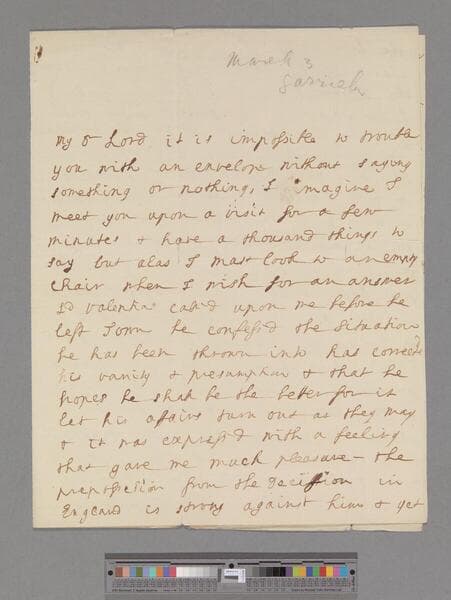 March 3
My Dr Lord it is impossible to trouble
you with an envelope without saying
something or nothing, I imagine I
meet you upon a visit for a few
minutes & have a thousand things to
say but alas I must look to an empty
Chair when I wish for an answer
Ld Valentia called upon me before he
left Town he confessd the Situation
he has been thrown into has corrected
his vanity & presumption & that he
hopes he shall be the better for it
let his affairs turn out as they may
& it was expressd with a feeling
that gave me much pleasure - the
prepossession from the Decission in
England is strong against him & yet